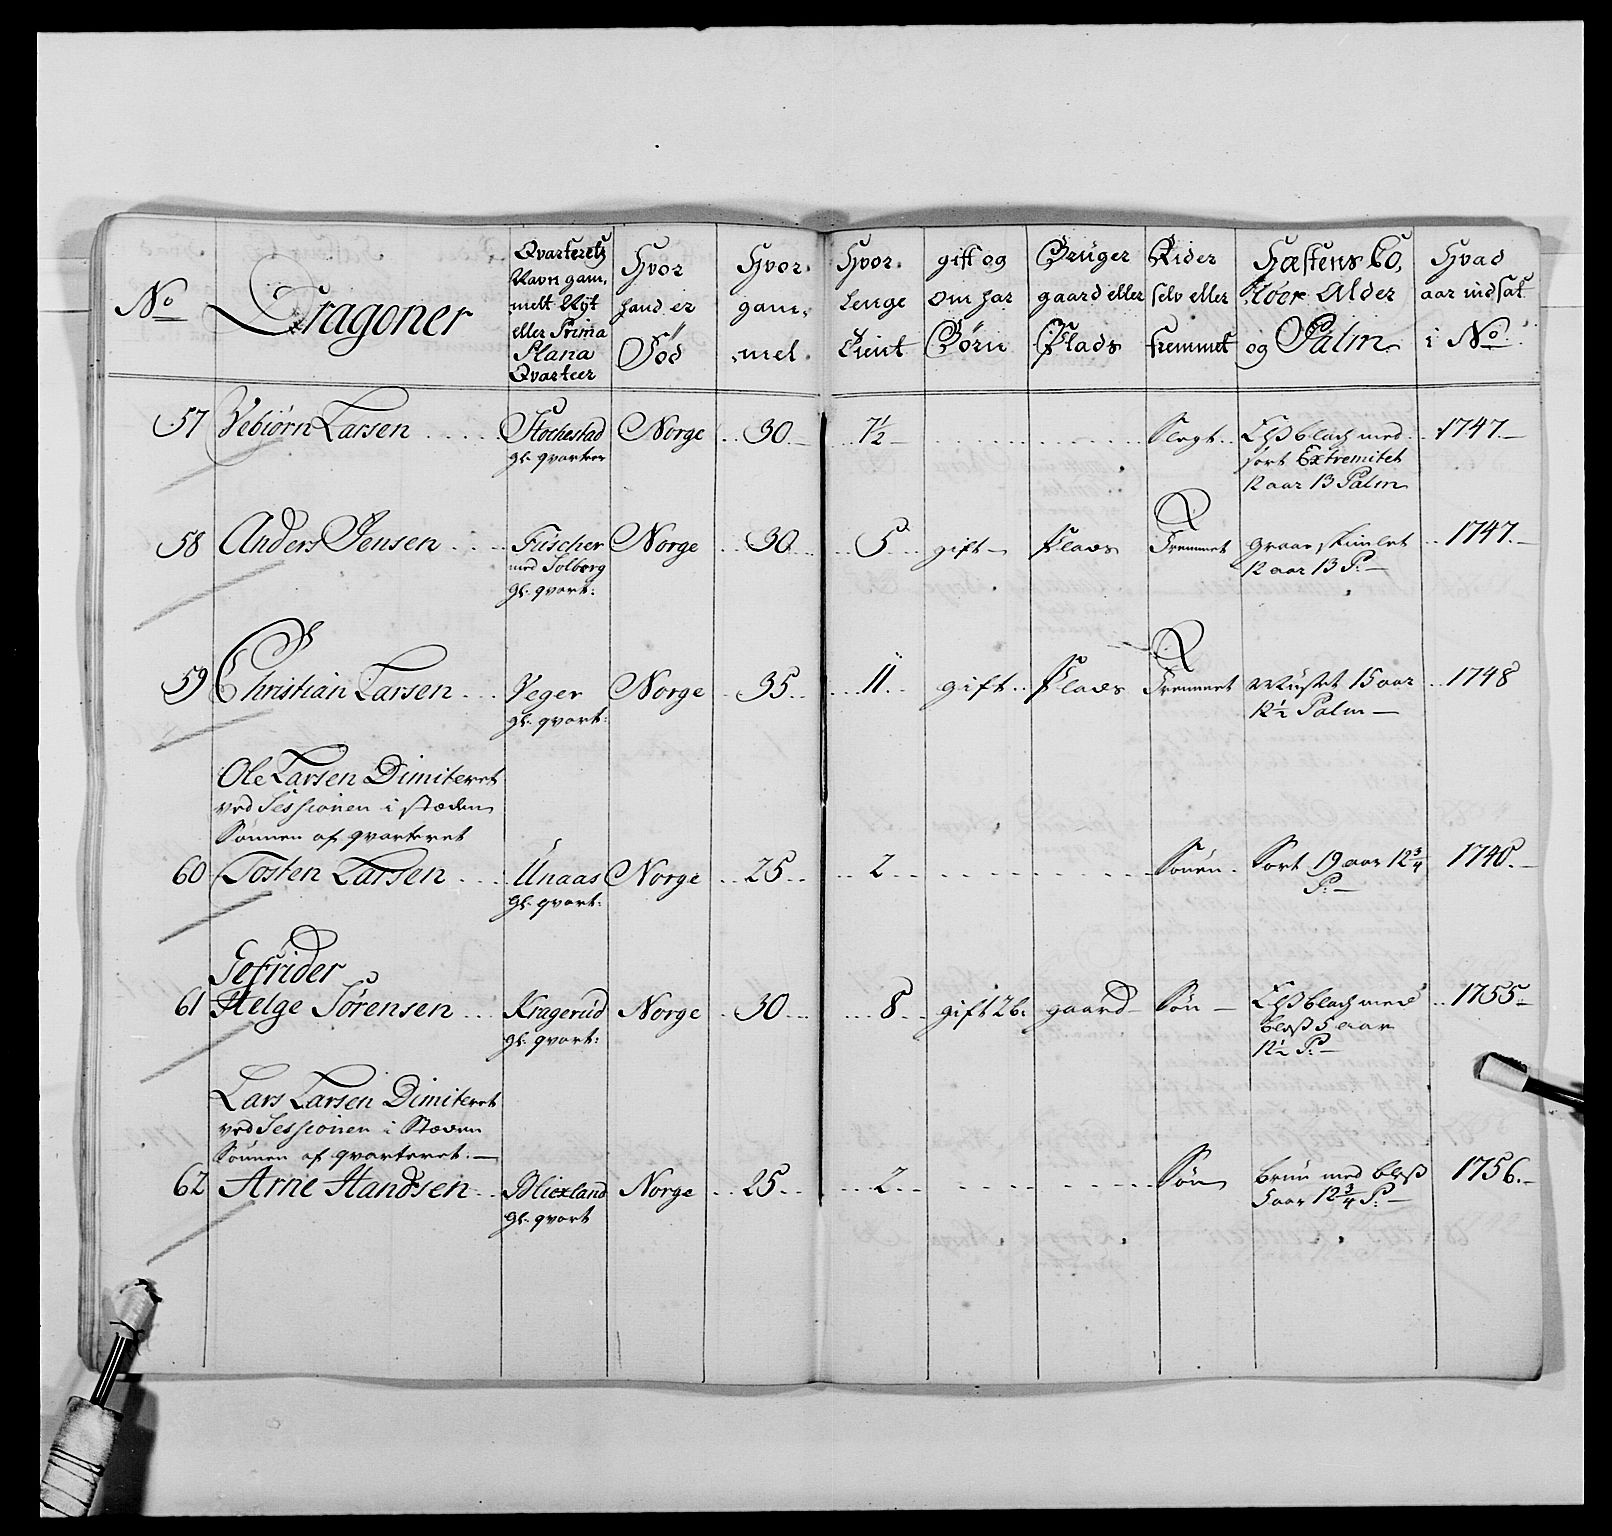 No Dragoner
Qvarterets Navn gam, melt Nyt eller Prima Plana Qvarteer
Hvor hand er Fød
Hvor gam, mel
Hvor Lenge Tient
gift og om har Børn
Bruger gaard eller Plads
Rider selv eller fremmet
Hæstens Co, löer Alder og Palm
Hvad aar indsat i No
57 Vebiørn Larsen Stochestad Norge 30 7½ Slegt Lysblach med 1747
gl: qvarteer sort Extremitet
12 aar 13 Palm
58 Anders Jensen Fuscher Norge 30 5 gift Plads Fremmet graa skimlet 1747
med Solberg 12 aar 13 P:
gl: qvart:
59 Christian Larsen Jeger Norge 35 11 gift Plads Fremmet Musket 15 aar 1748
gl: qvart: 12½ Palm
Ole Larsen Dimiteret
ved Sessionen i stæden
Sönnen af qvarteret
60 Tosten Larsen Unaas Norge 25 2 Sönen Sort 19 aar 12¾ 1740
gl: qvart: P:
Gefrider
61 Helge Sörensen Kragerud Norge 30 8 gift 2 b: gaard Sön Lysblach med 1755
gl: qvart: bles 5 aar
12½ P:
Lars Larsen Dimiteret
ved Sessionen i Stæden
Sönnen af qvarteret:
62 Arne Handsen Blixland Norge 25 2 Sön brun med bles 1756
gl: qvart 5 aar 12¾ P: